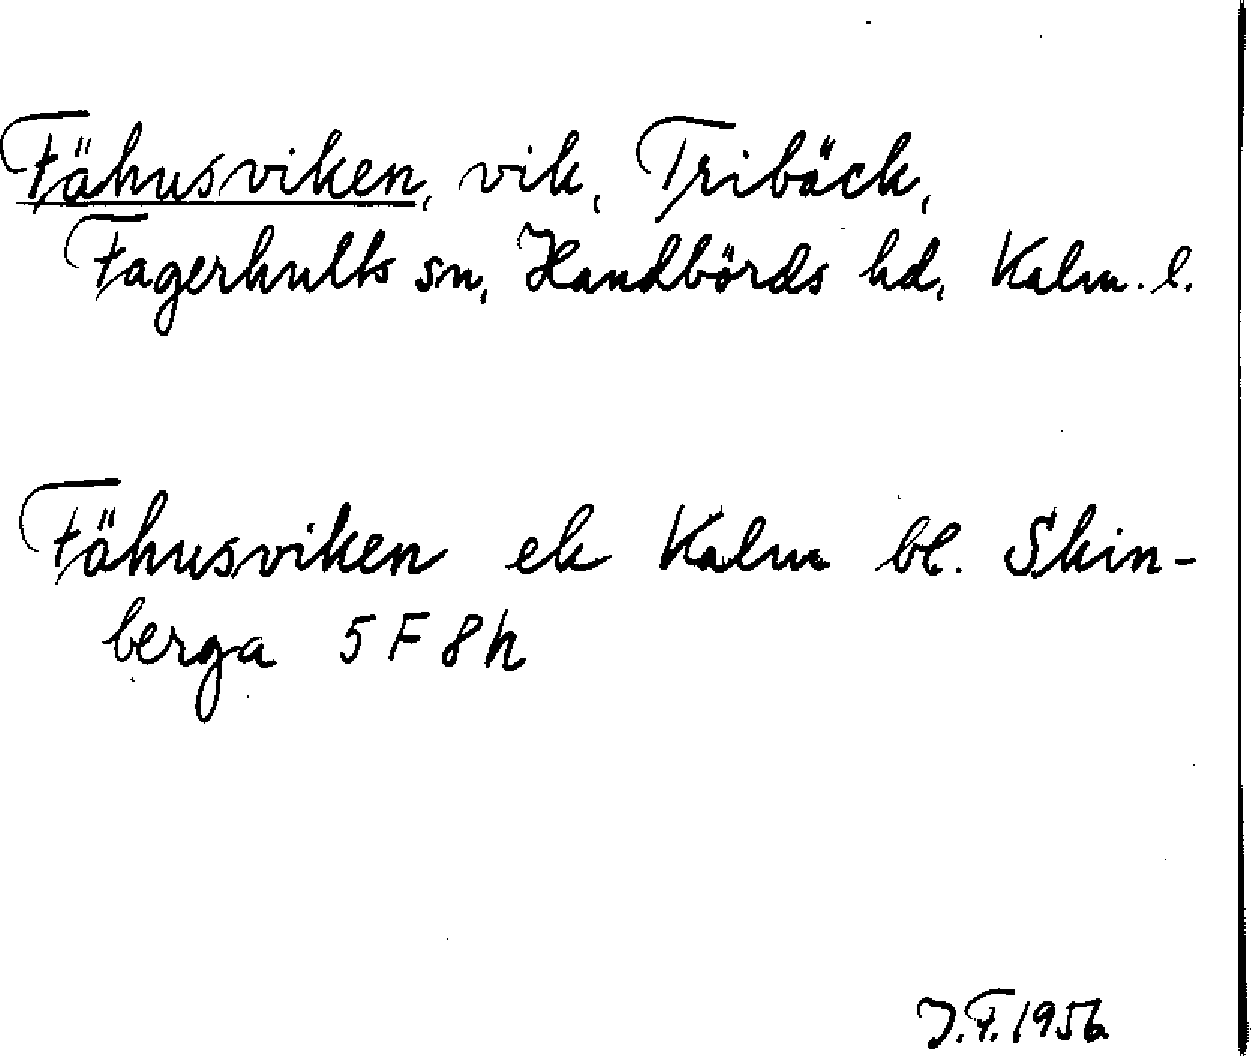 Fähusviken, vik, Tribäck,
Fagerhults sn, Handbörds hd, Kalm. l.
Fähusviken ek Kalm bl. Skin-
berga 5 F 8 h
J.F. 1956